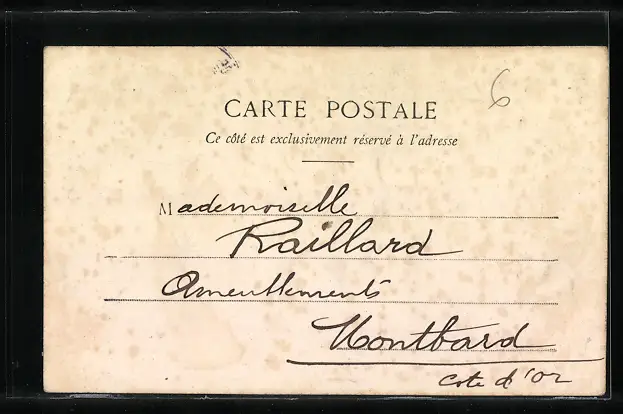 6
CARTE POSTALE
Ce côté est exclusivement réservé à l'adresse
Mademoiselle
Raillard
Ameublements
Montbard
Cote d'or